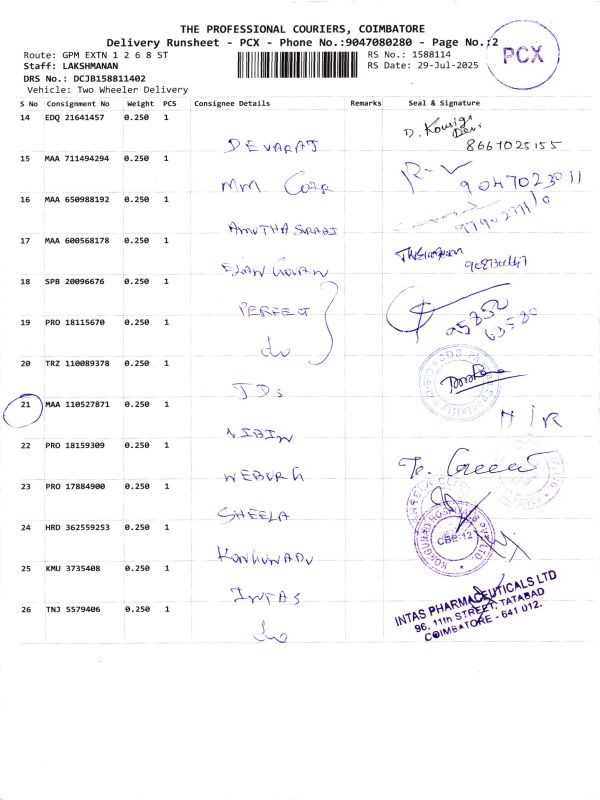 THE PROFESSIONAL COURIERS, COIMBATORE
Delivery Runsheet - PCX - Phone No.:9047080280 - Page No.:2
PCX
Route: GPM EXTN 1 2 6 8 ST
RS No. : 1588114
Staff: LAKSHMANAN
RS Date: 29-Jul-2025
DRS No.: DCJB158811402
Vehicle: Two Wheeler Delivery
S No Consignment No Weight PCS Consignee Details Remarks Seal & Signature
14 EDQ 21641457 0.250 1
DEVARAJ
D. Kousig Devi
8667025155
15 MAA 711494294 0.250 1
MM Corp
R-V
9047023011
16 MAA 650988192 0.250 1
AMUTHA SURABI
17 MAA 600568178 0.250 1
ELAN GOVAN
18 SPB 20096676 0.250 1
PERFECT
95852
63580
19 PRO 18115670 0.250 1
do
20 TRZ 110089378 0.250 1
JDS
21 MAA 110527871 0.250 1
N/R
VIBIN
22 PRO 18159309 0.250 1
WEBURG
23 PRO 17884900 0.250 1
SHEELA
24 HRD 362559253 0.250 1
CBE-12
KONGUNADU
25 KMU 3735408 0.250 1
INTAS
26 TNJ 5579406 0.250 1
do
INTAS PHARMACEUTICALS LTD
96, 11th STREET, TATABAD
COIMBATORE - 641 012.